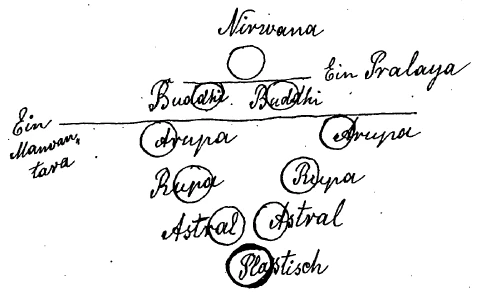 Nirwana
Ein Pralaya
Buddhi. Buddhi
Ein
Manvan-
tara
Arupa Arupa
Rupa Rupa
Astral Astral
Plastisch